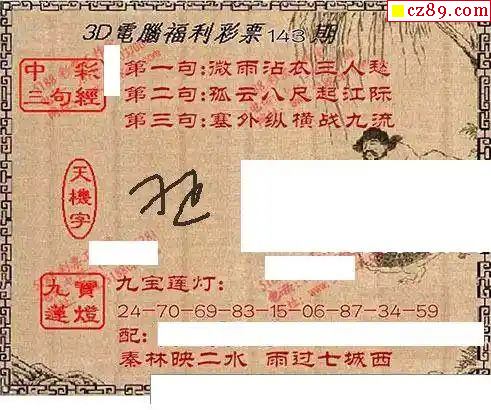 cz89.com
3D電腦福利彩票143期
中彩
三句經
第一句:微雨沾衣三人愁
第二句:孤云八尺起江际
第三句:塞外纵横战九流
天機字
九寶蓮燈
九宝莲灯:
24-70-69-83-15-06-87-34-59
配:
秦林映二水 雨过七城西